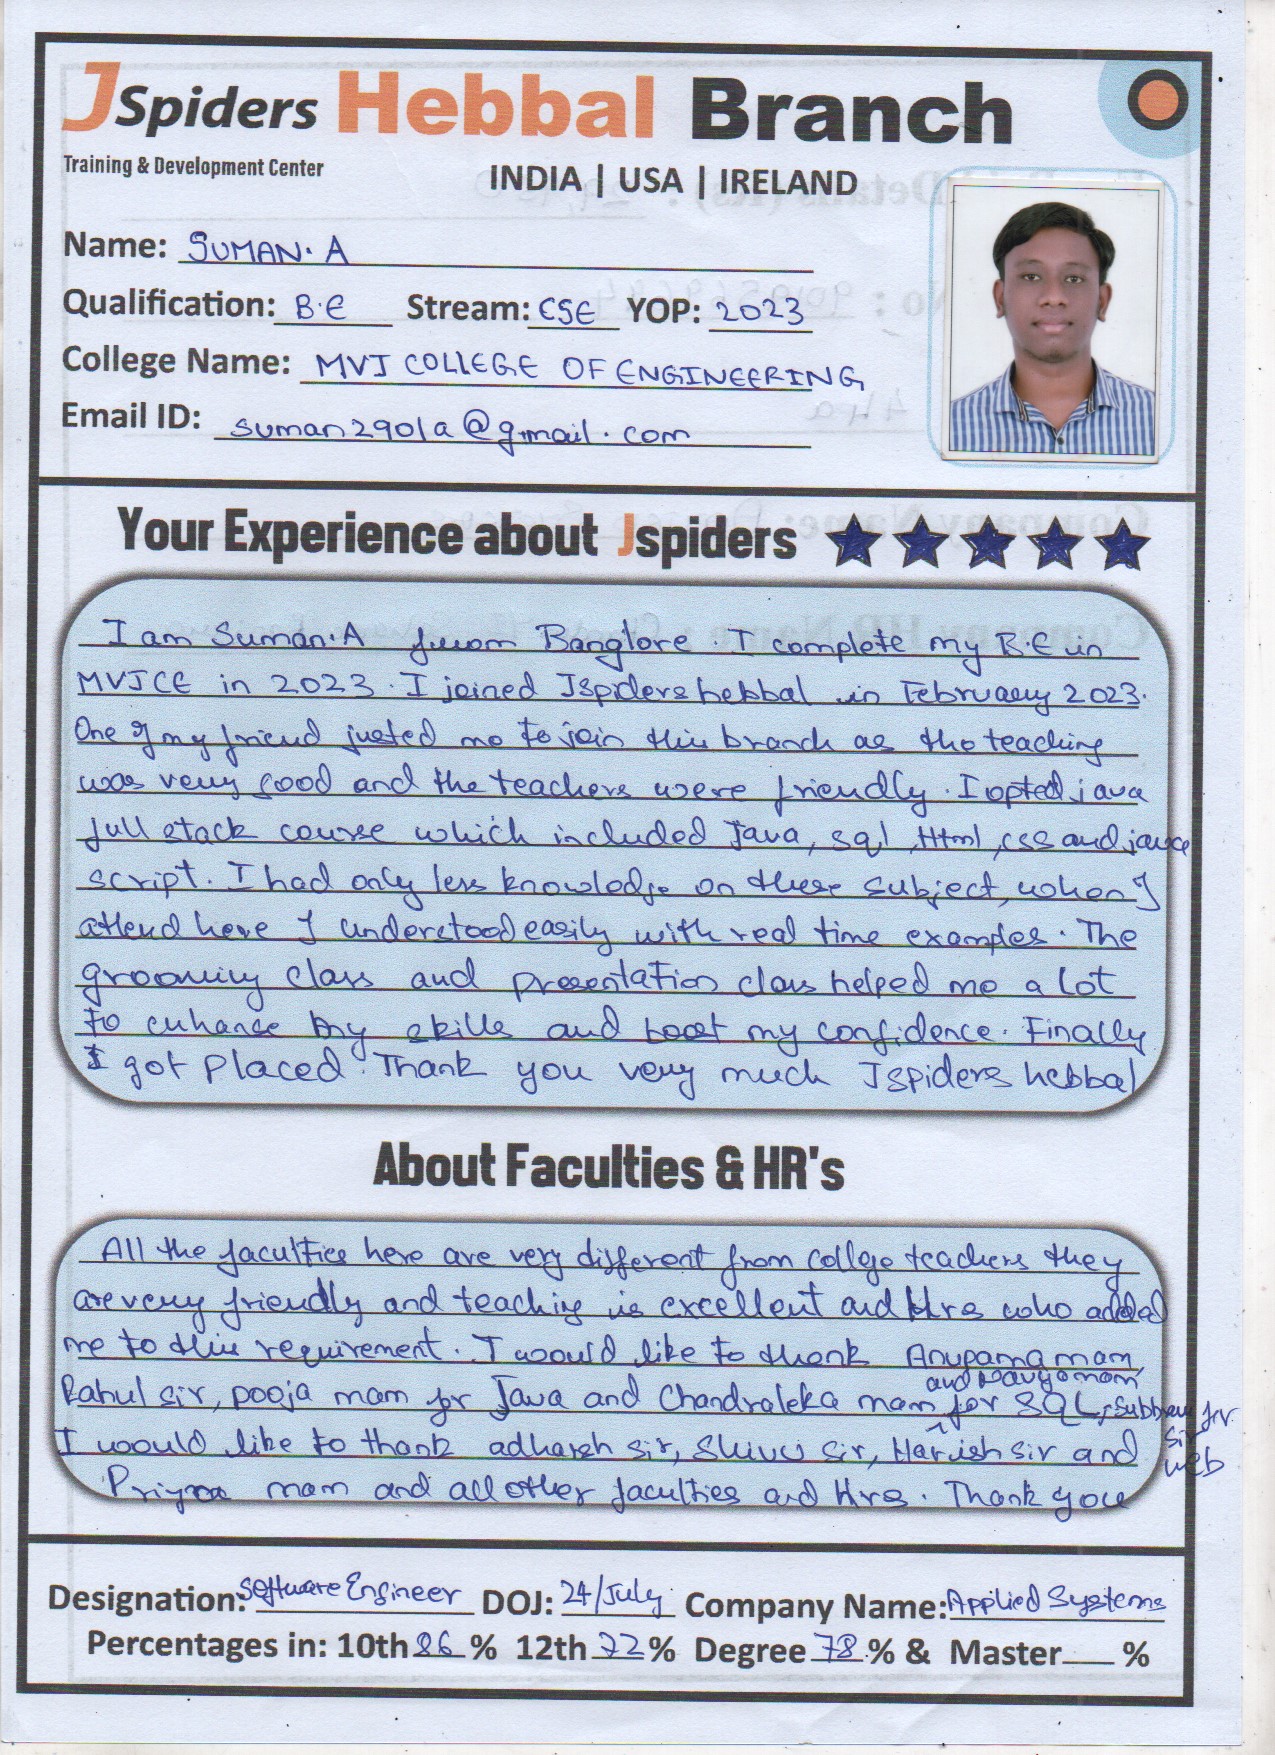 JSpiders Hebbal Branch
Training & Development Center
INDIA | USA | IRELAND
Name: SUMAN. A
Qualification: B.E Stream: CSE YOP: 2023
College Name: MVJ COLLEGE OF ENGINEERING
Email ID: suman2901a@gmail.com
Your Experience about Jspiders
I am Suman.A from Banglore. I complete my B.E in
MVJCE in 2023. I joined Jspiders hebbal in February 2023.
One of my friend me to join this branch as the teaching
was very good and the teachers were friendly. I opted java
full stack course which included Java, sql, Html, css and java
script. I had only less knowledge on these subject, when I
attend here I understood easily with real time examples. The
grooming class and presentation class helped me a lot
to enhance my skills and boost my confidence. Finally
I got placed. Thank you very much Jspiders hebbal
About Faculties & HR's
All the faculties here are very different from college teachers they
are very friendly and teaching is excellent and Hrs who added
me to this requirement. I would like to thank Anupama mam,
and Navya mam
Rahul sir, pooja mam for Java and Chandraleka mam for SQL, sir for
I would like to thank adharsh sir, Shivu sir, Harish sir and web
Priya mam and all other faculties and Hrs. Thank you
Designation: Software Engineer DOJ: 24/July Company Name: Applied Systems
Percentages in: 10th 86 % 12th 72 % Degree 78 % & Master %